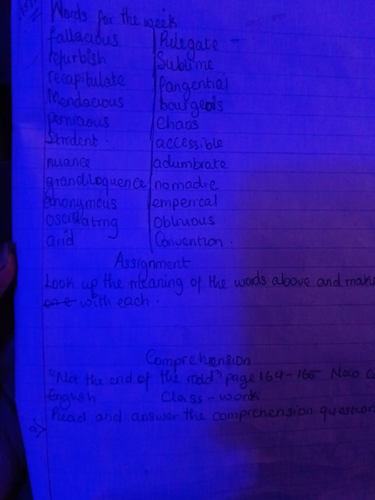 Words for the week
fallacious | Relegate
refurbish | Sublime
recapitulate | Tangential
Mendacious | bourgeois
pernicious | Chaos
Strident. | accessible
nuance | adumbrate
grandiloquence | nomadic
anonymous | emperical
oscillating | Oblivious
arid | Convention.
Assignment
Look up the meaning of the words above and make
with each.
Comprehension
"Not the end of the road" page 164-165 New
English Class-work
Read and answer the comprehension question